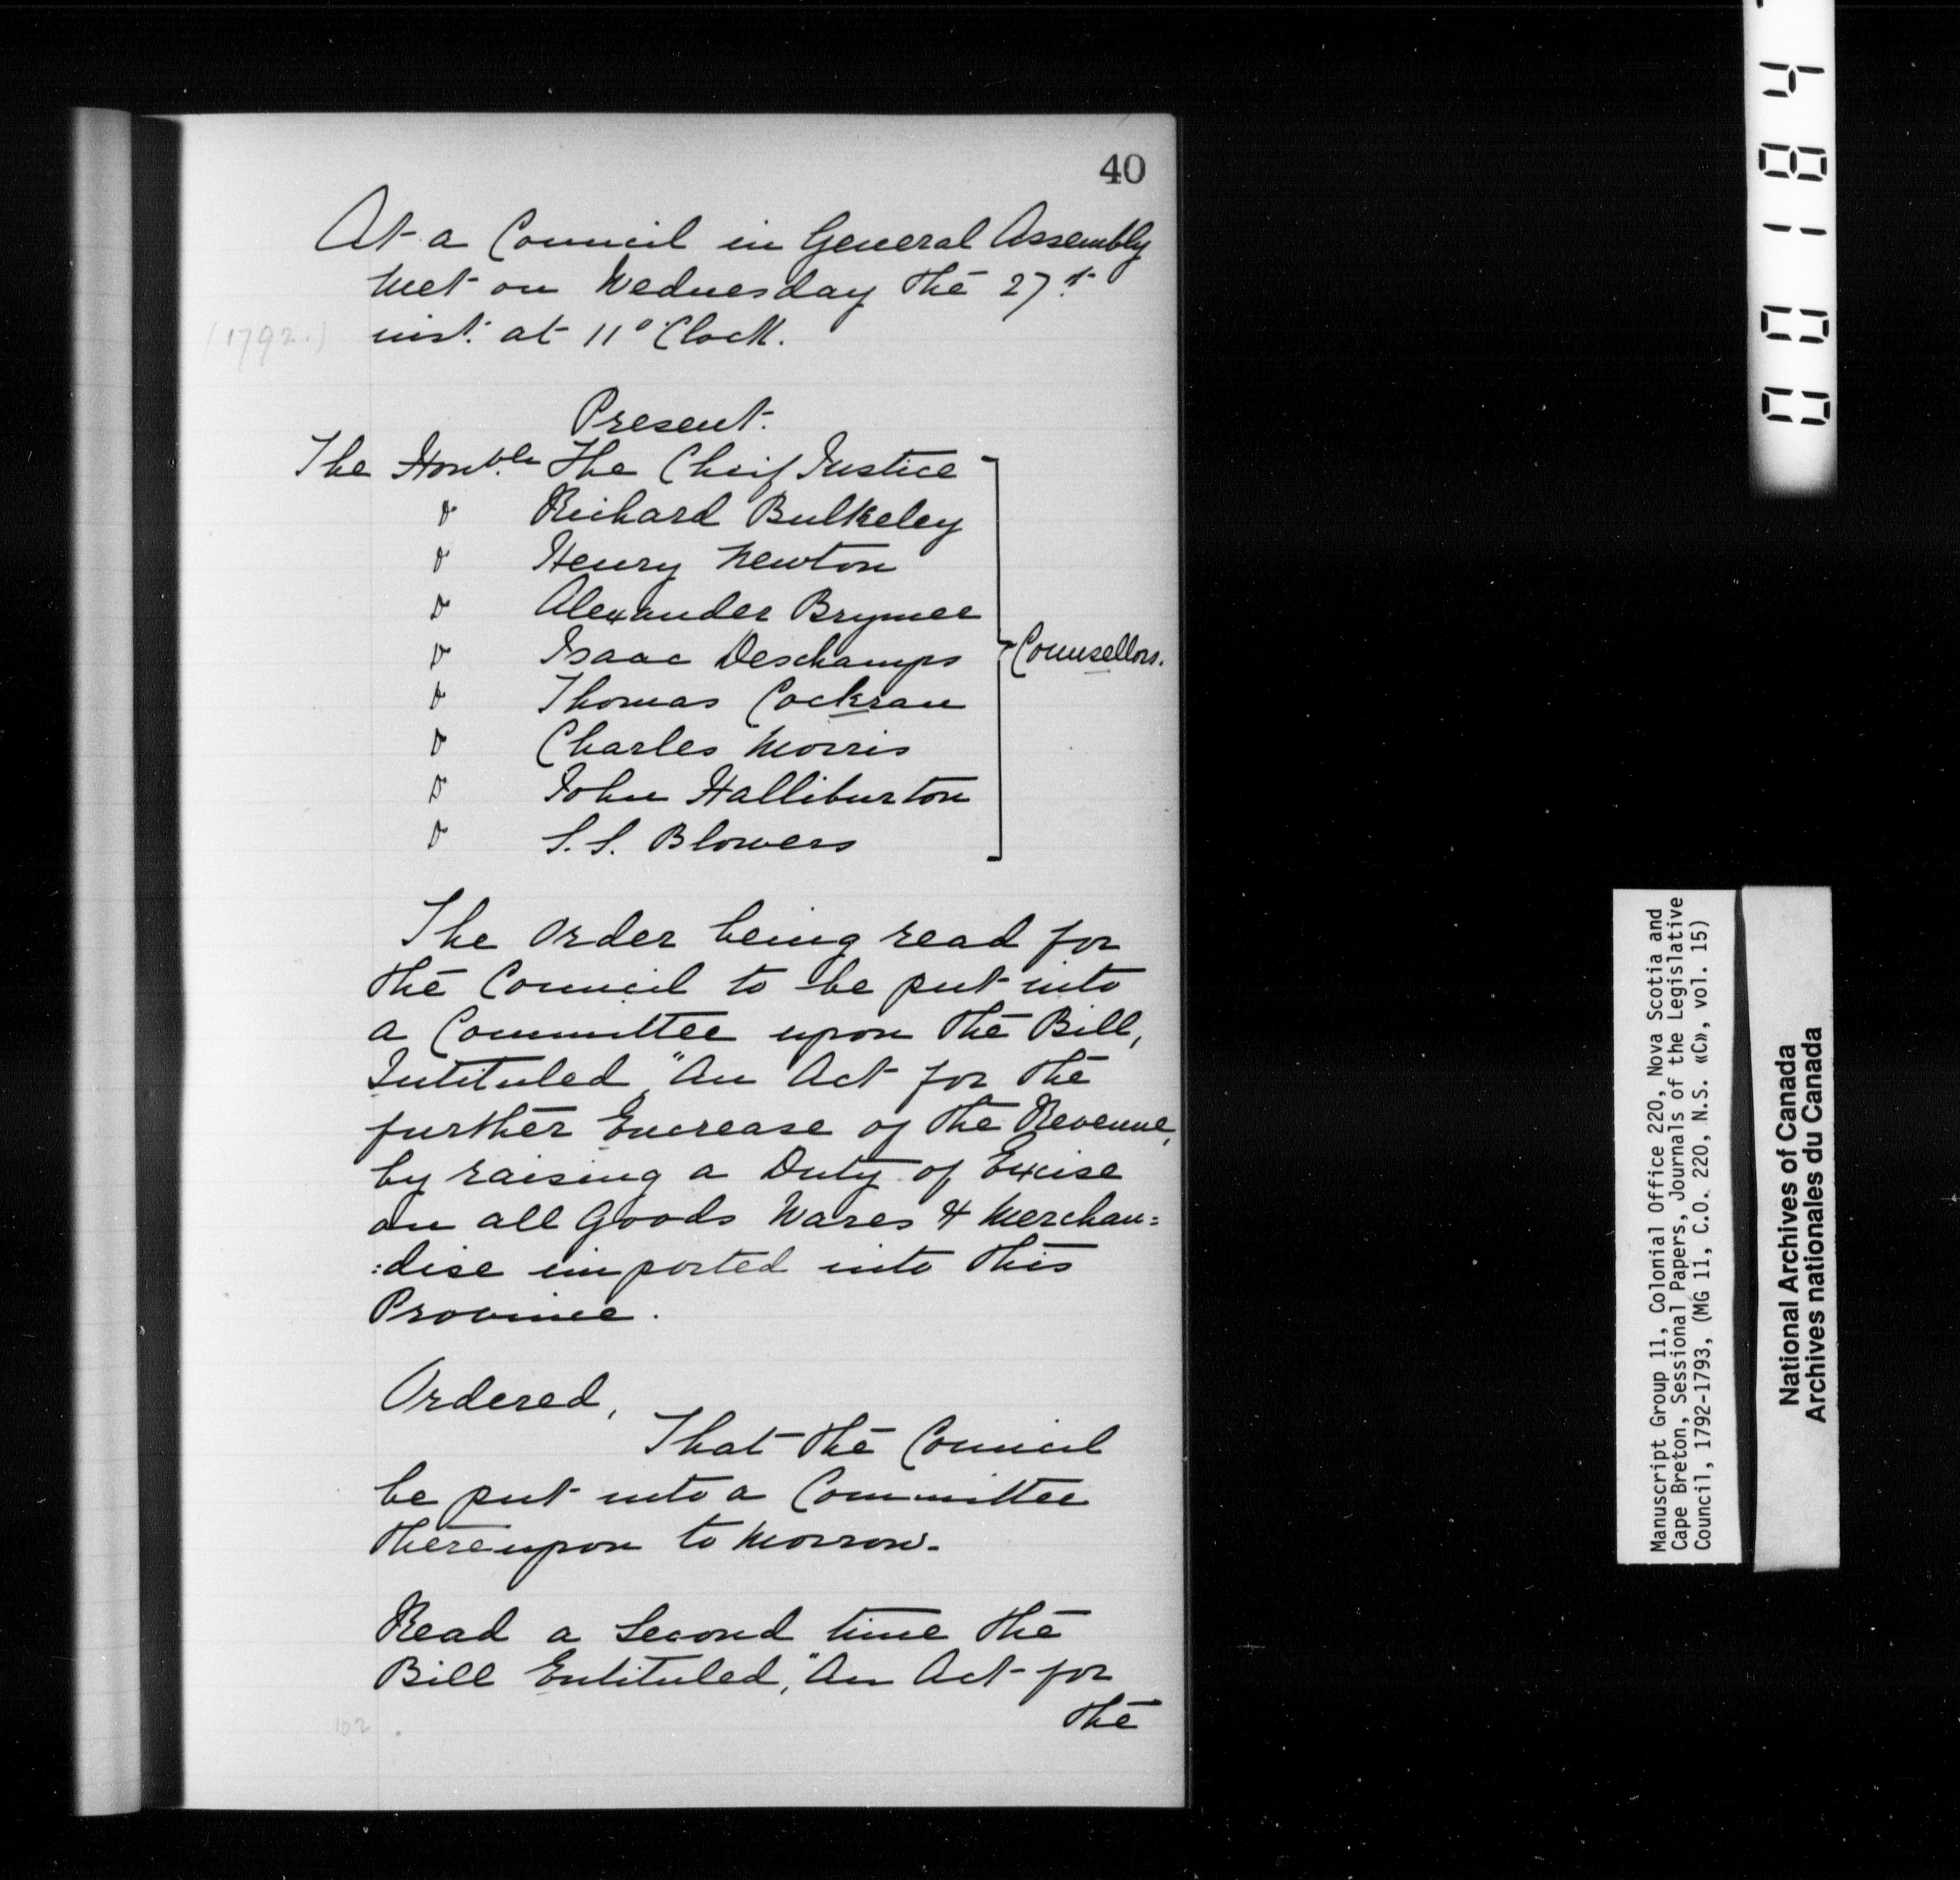 40
At a Council in General Assembly
met on Wednesday the 27th
inst. at 11 o'Clock.
(1792.)
Present.
The Honble. The Cheif Justice
Do Richard Bulkeley
Do Henry Newton
Do Alexander Brymer
Do Isaac Deschamps
Do Thomas Cockran
Do Charles Morris
Do John Halliburton
Do S. S. Blowers
Counsellors.
The Order being read for
the Council to be put into
a Committee upon the Bill,
Intituled, "An Act for the
further Encrease of the Revenue,
by raising a Duty of Excise
on all Goods Wares & Merchan=
:dise imported into this
Province.
Ordered,
That the Council
be put into a Committee
thereupon to morrow.
Read a Second time the
Bill Entituled, "An Act for
the
102
001184
Manuscript Group 11, Colonial Office 220, Nova Scotia and
Cape Breton, Sessional Papers, Journals of the Legislative
Council, 1792-1793, (MG 11, C.O. 220, N.S. «C», vol. 15)
National Archives of Canada
Archives nationales du Canada